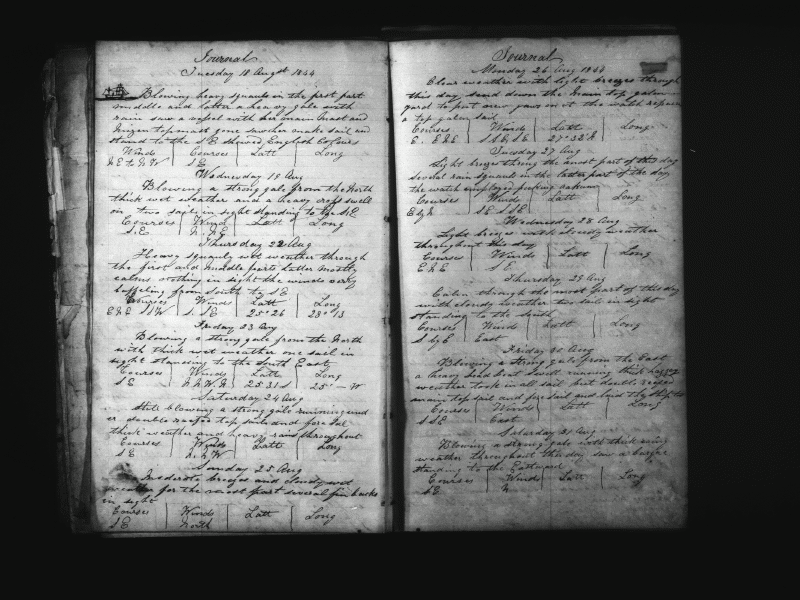 Journal
Tuesday 18 Augst 1844
Blowing heavy squauls in the first part
middle and latter a heavy gale with
rain saw a vessel with her main mast and
mizen top mast gone saw her make sail and
stand to the SE shewed English Colours
Winds Courses Latt Long
SE
Wednesday 19 Aug
Blowing a strong gale from the North
thick wet weather and a heavy cross swell
on two sails in sight standing to the SE
Courses Wind Latt Long
S.E N.NE
Thursday 22 Aug
Heavy squauly wet weather through
the first and middle parts latter mostly
calms nothing in sight the winds very
baffeling from South to SE
Courses Winds Latt Long
S. SE 25°26 28°13
Friday 23 Aug
Blowing a strong gale from the North
with thick wet weather one sail in
sight standing to the South East
Courses Winds Latt Long
SE 25 31 S 25° — W
Saturday 24 Aug
Still blowing a strong gale running und
er double reefed top sails and fore sail
thick weather and heavy rains throughout
Courses Winds Latt Long
SE N.NW
Sunday 25 Aug
Moderate breezes and cloudy wet
weather for the most part several fin backs
in sight
Courses Winds Latt Long
SE North
Journal
Monday 26 Aug 1844
Clear weather with light breezes through
this day send down the main top galent
yard to put new on it the watch repairing
a top galent sail
Courses Winds Latt Long
E. ESE SSE, SE 27° 32 S
Tuesday 27 Aug
Light breezes thring the most part of this day
several rain squauls in the latter part of the day
the watch employed picking oakum
Courses Winds Latt Long
SE SSE
Wednesday 28 Aug
Light breezes with cloudy weather
throughout this day
Courses Winds Latt Long
SE
Thursday 29 Aug
Calm through the most part of this day
with cloudy weather two sail in sight
standing to the South
Courses Wind Latt Long
S by E East
Friday 30 Aug
Blowing a strong gale from the East
a heavy head beat swell running thick
weather took in all sail but double reefed
main top sail and fore sail and
Courses Winds Latt Long
SSE East
Saturday 31 Aug
Blowing a strong gale with thick
weather throughout this day saw a
standing to the Eastward
Courses Winds Latt Long
SE N